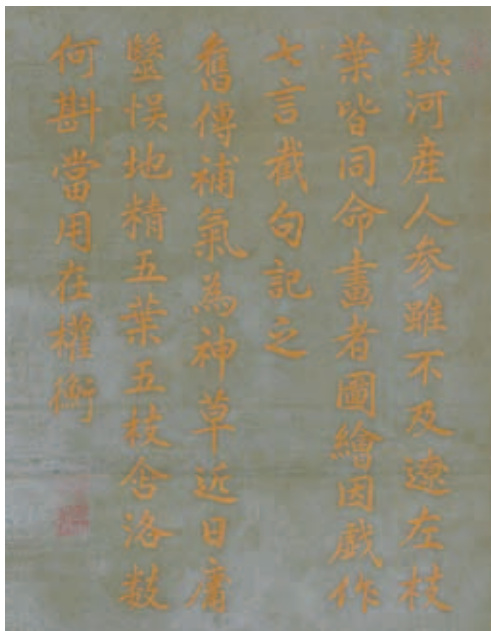 熱河産人参雖不及遼左枝
葉皆同命畫者圖繪因戲作
七言截句記之
舊傳補氣為神草近日庸
毉悮地精五葉五枝含洛數
何斟當用在權衡